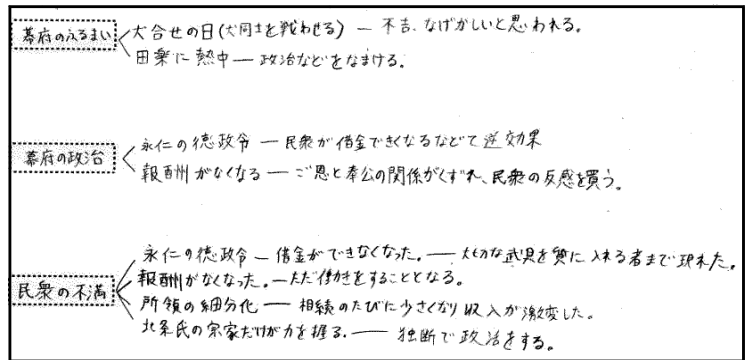 幕府のふるまい
犬合せの日(犬同士を戦わせる) ― 不吉、なげかしいと思われる。
田楽に熱中 ― 政治などをなまける。
幕府の政治
永仁の徳政令 ― 民衆が借金できなくなるなどで逆効果
報酬がなくなる ― ご恩と奉公の関係がくずれ、民衆の反感を買う。
民衆の不満
永仁の徳政令 ― 借金ができなくなった。 ― 大切な武具を質に入れる者まで現れた。
報酬がなくなった。 ― ただ働きをすることとなる。
所領の細分化 ― 相続のたびに少さくなり収入が激変した。
北条氏の宗家だけが力を握る. ― 独断で政治をする。